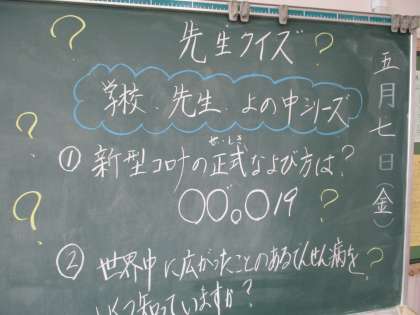 先生クイズ
学校、先生、よの中シリーズ
せいしき
① 新型コロナの正式なよび方は?
○○゙。○19
② 世界中に広がったことのあるでんせん病を
いくつ知っていますか?
五月七日(金)